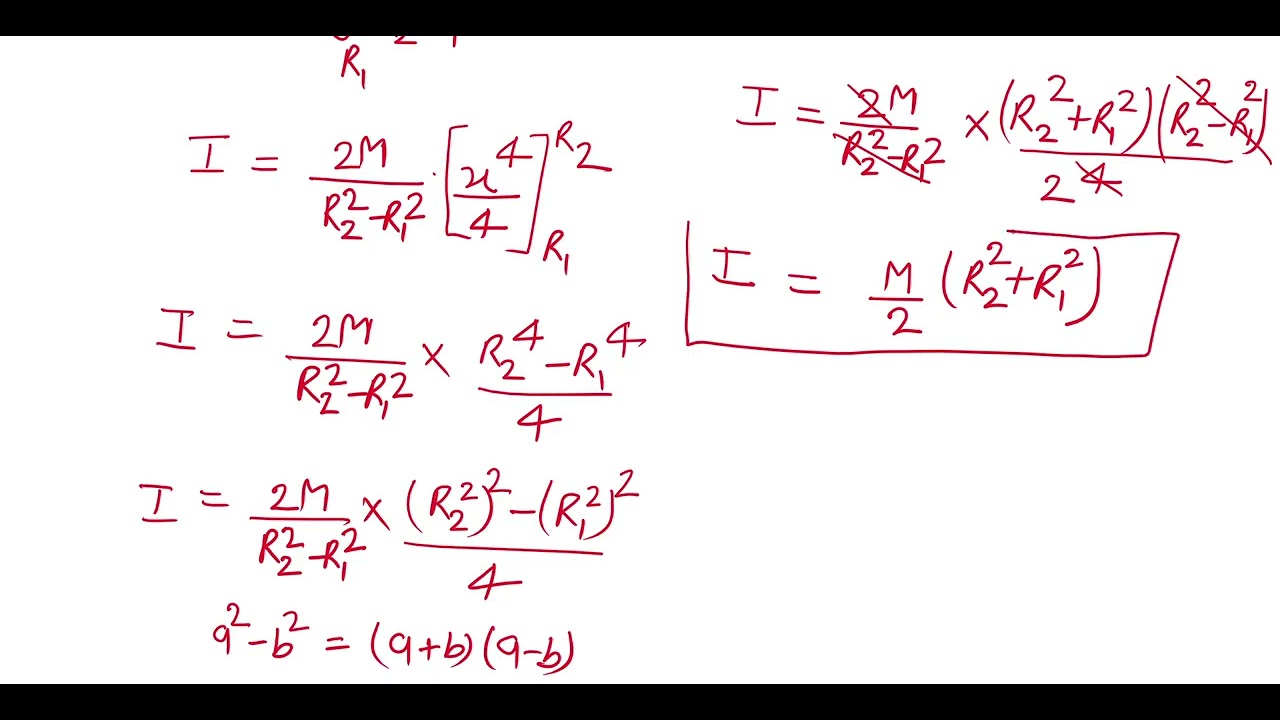 R₁
I = 2M/(R₂² - R₁²) · [x⁴/4] R₂ R₁
I = 2M/(R₂² - R₁²) × (R₂⁴ - R₁⁴)/4
I = 2M/(R₂² - R₁²) × ((R₂²)² - (R₁²)²)/4
a² - b² = (a+b)(a-b)
I = 2M/(R₂² - R₁²) × (R₂² + R₁²)(R₂² - R₁²)/2 4
I = M/2 (R₂² + R₁²)